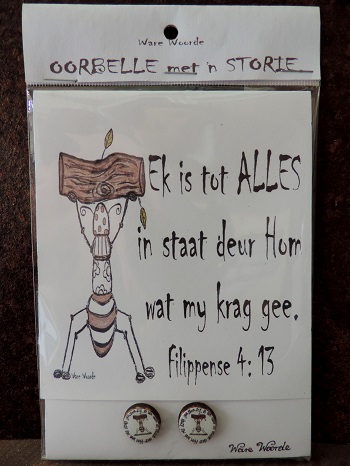 Ware Woorde
OORBELLE met 'n STORIE
Ek is tot ALLES
in staat deur Hom
wat my krag gee.
Filippense 4: 13
Ware Woorde
Ware Woorde